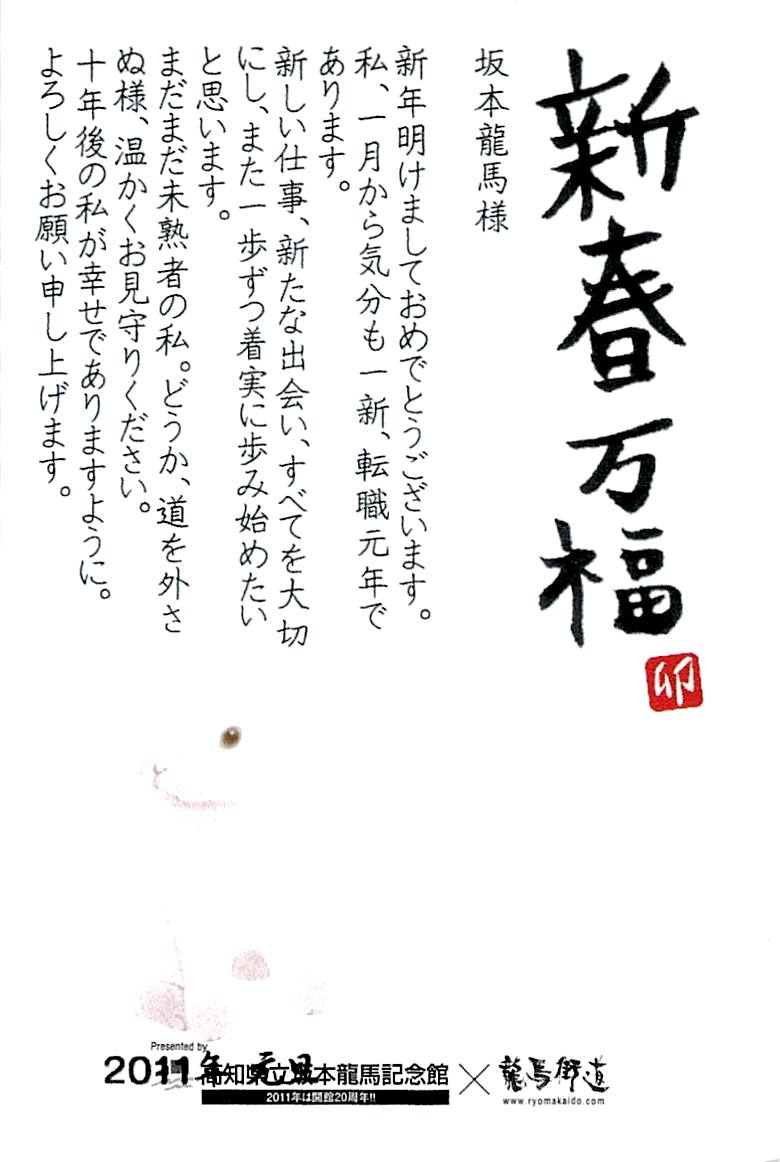 新春万福
卯
坂本龍馬様
新年明けましておめでとうございます。
私、一月から気分も一新、転職元年で
あります。
新しい仕事、新たな出会い、すべてを大切
にし、また一歩ずつ着実に歩み始めたい
と思います。
まだまだ未熟者の私。どうか、道を外さ
ぬ様、温かくお見守りください。
十年後の私が幸せでありますように。
よろしくお願い申し上げます。
Presented by
2011年 元旦
高知県立坂本龍馬記念館×龍馬街道
2011年は開館20周年!!
www.ryomakaido.com